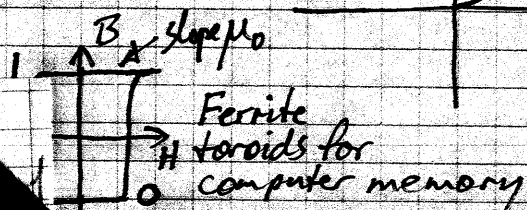 B
slope μ₀
1
Ferrite
H toroids for
0 computer memory